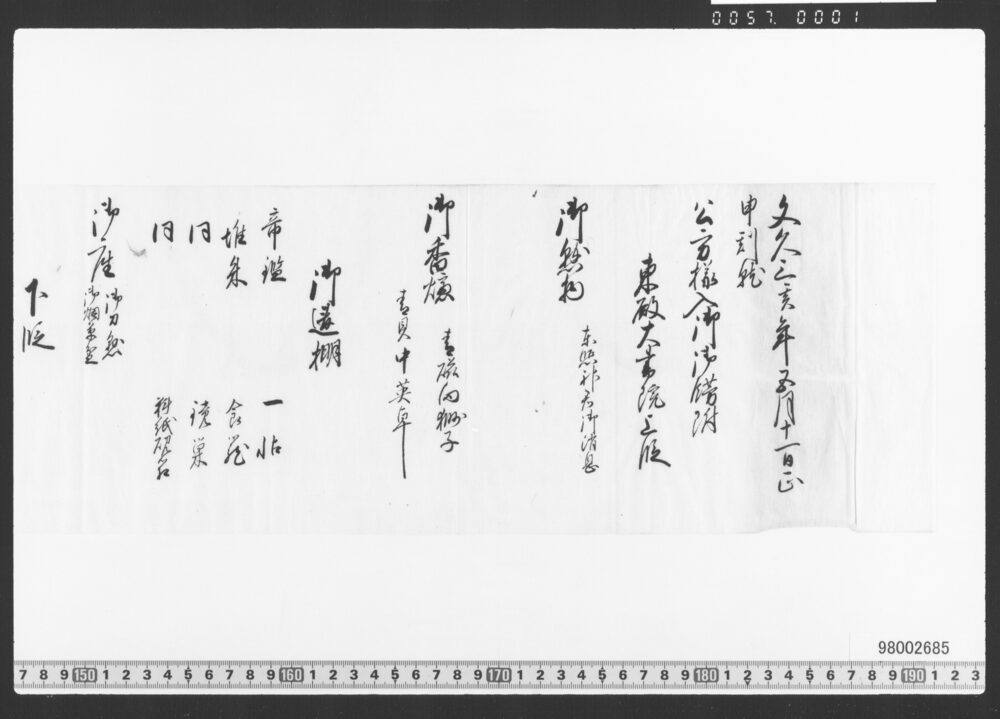 0057.0001
文久三亥年五月十一日正
申刻
公方様入御御錺附
東殿大書院上段
御懸物
東照神君御消息
御香爐
青磁向獅子
青貝中英卓
御違棚
帝鑑
一帖
堆朱
食籠
同
同
料紙硯石
御座
御刀懸
御烟草盆
下段
98002685
7 8 9 150 1 2 3 4 5 6 7 8 9 160 1 2 3 4 5 6 7 8 9 170 1 2 3 4 5 6 7 8 9 180 1 2 3 4 5 6 7 8 9 190 1 2 3